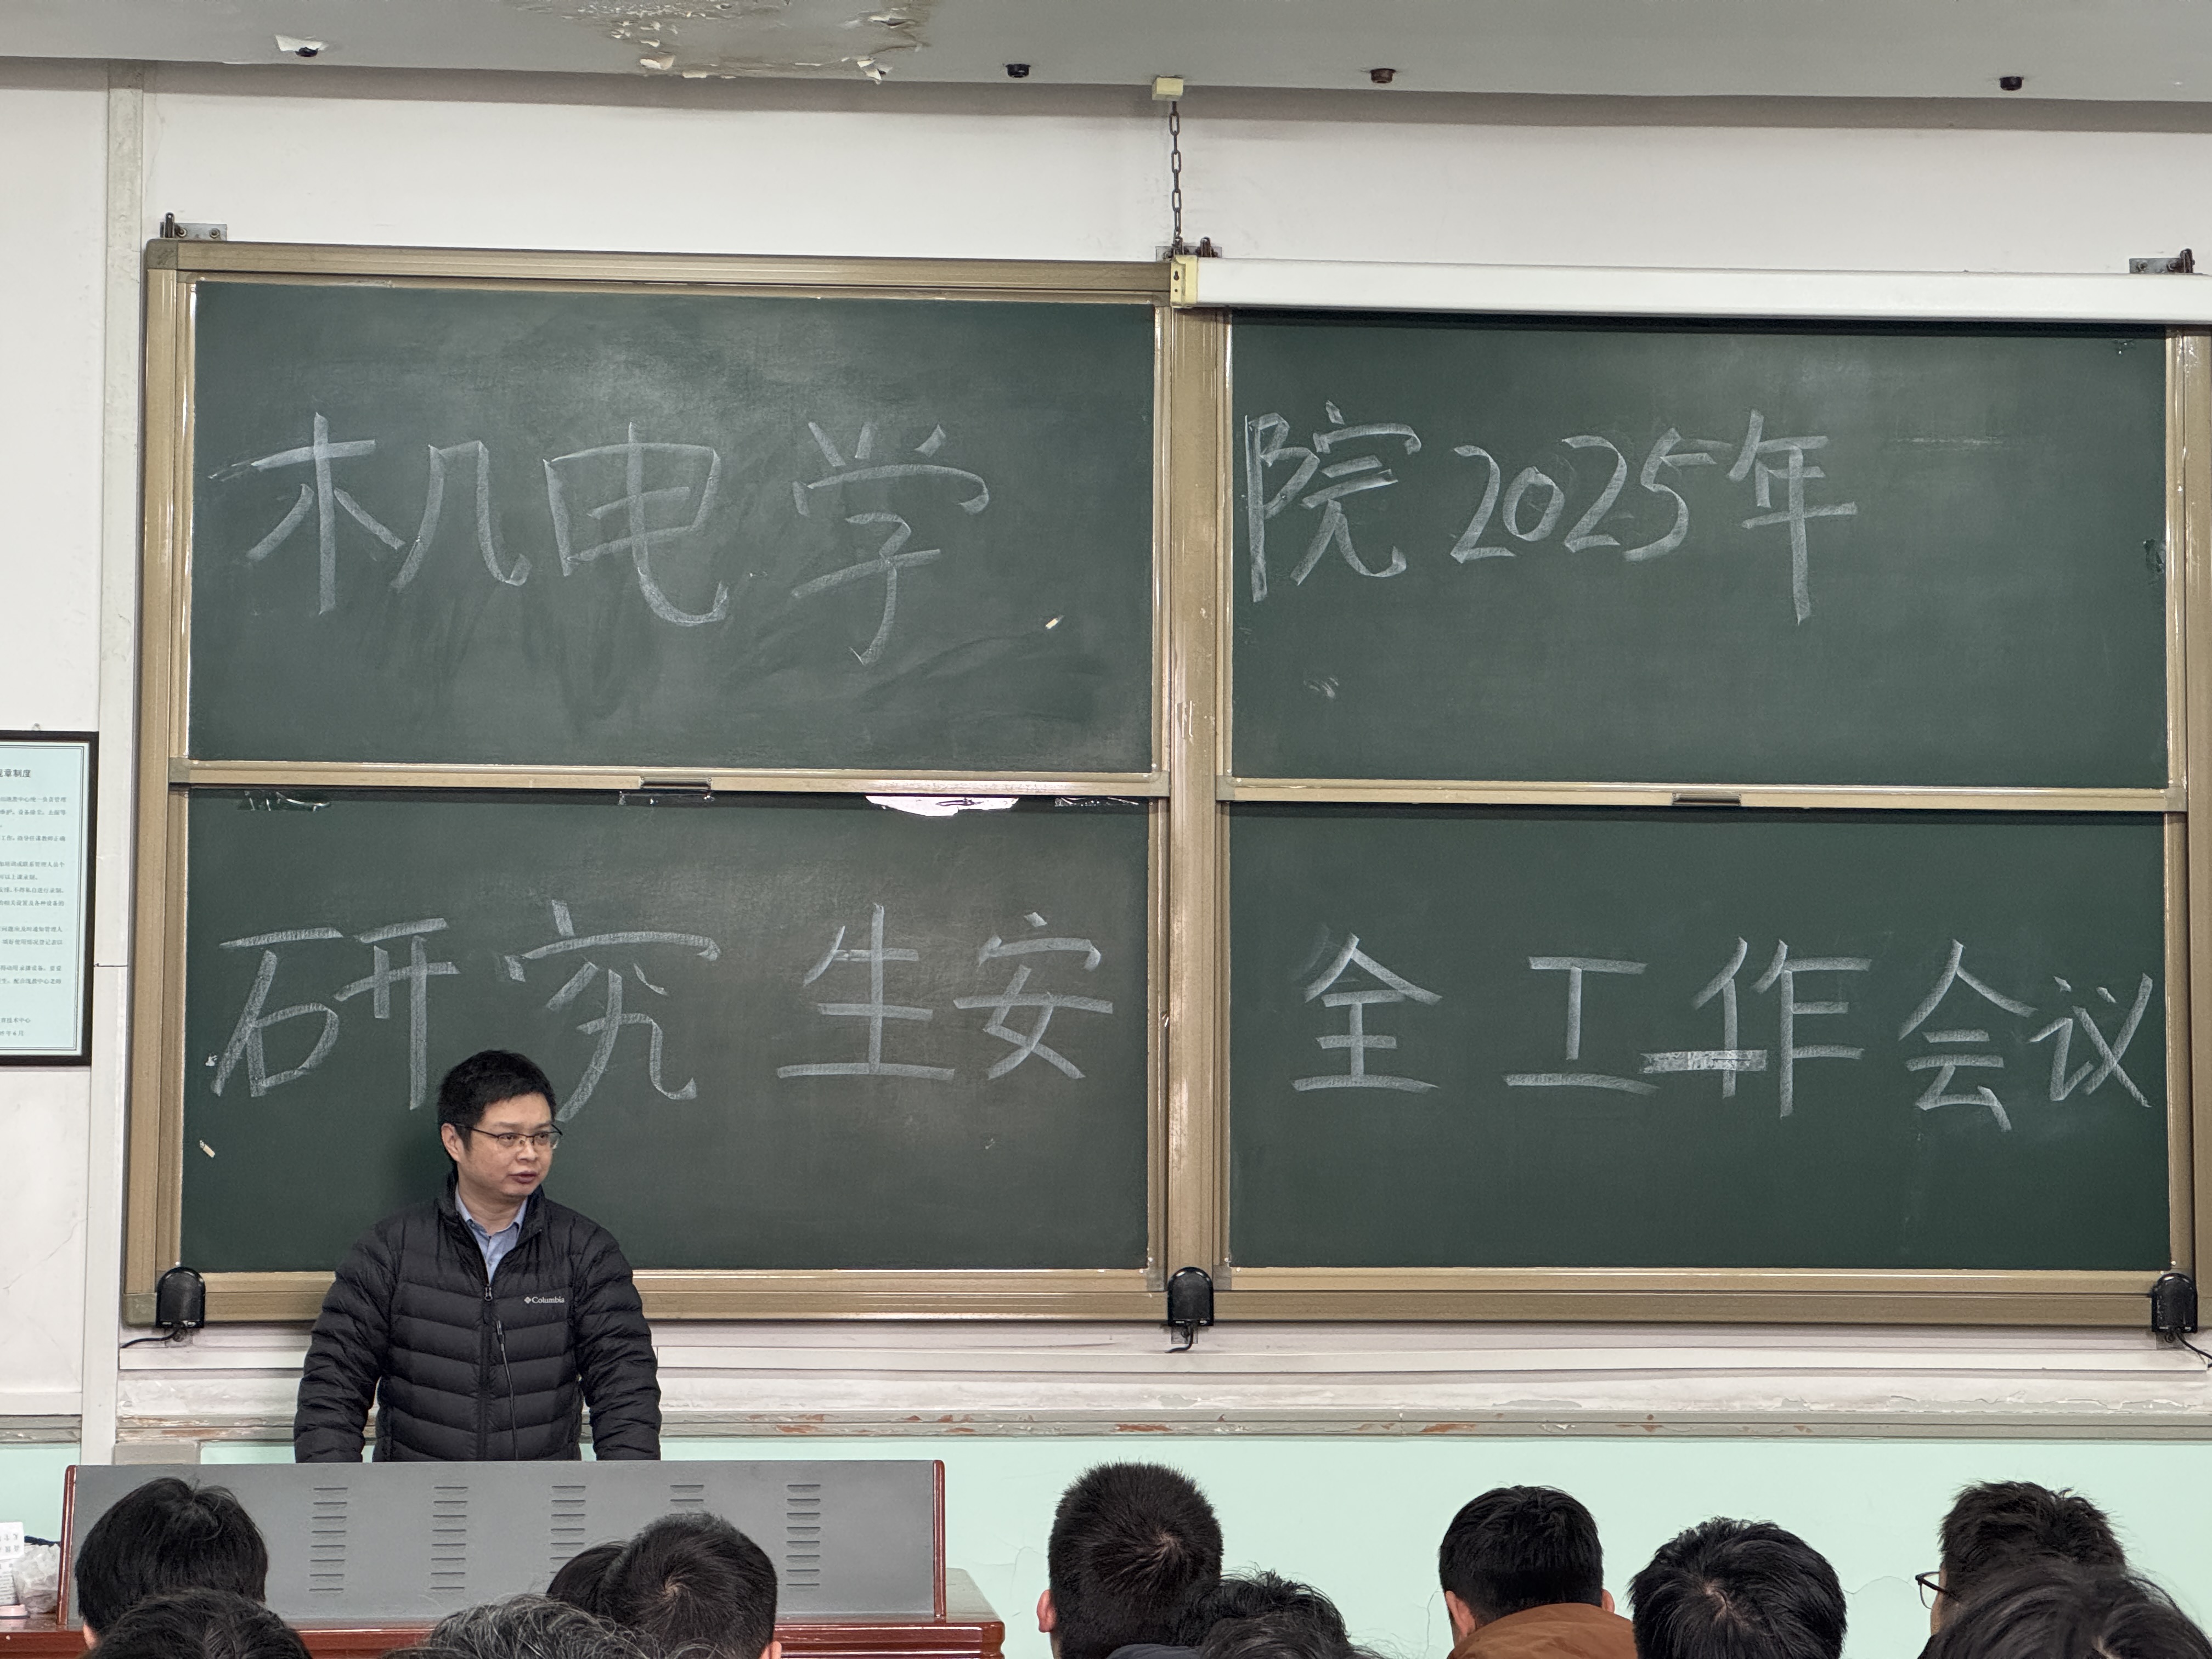 机电学院2025年
研究生安全工作会议
Columbia
章制度